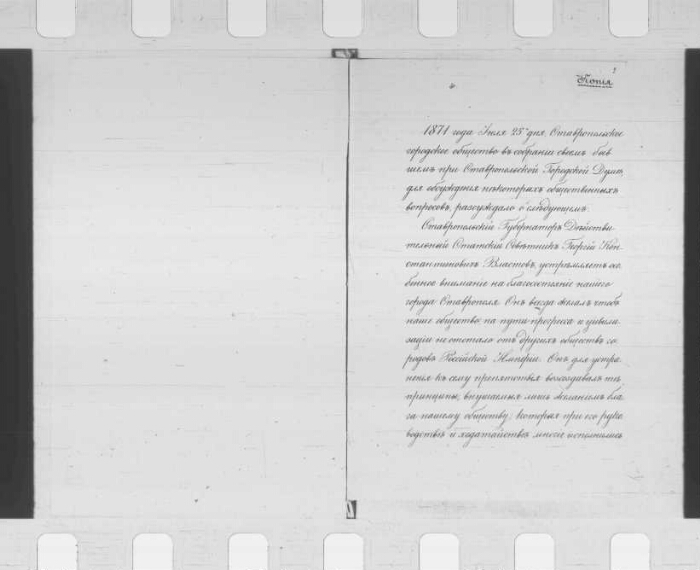 Копія
1871 года Іюля 25 дня Ставропольское
городское общество въ собраніи своемъ быв
шемъ при Ставропольской Городской Думѣ,
для обсужденія нѣкоторыхъ общественныхъ
вопросовъ, разсуждало о слѣдующемъ.
Ставропольскій Губернаторъ Дѣйстви
тельный Статскій Совѣтникъ Георгій Кон
стантиновичъ Властовъ, устремляетъ осо
бенное вниманіе на благосостояніе нашего
города Ставрополя. Онъ всегда желалъ чтобъ
наше общество на пути прогреса и цивили
заціи не отстало отъ другихъ обществъ го
родовъ Россійской Имперіи. Онъ для устра
ненія къ сему препятствій возсоздавалъ тѣ
принципы, внушаемыя лишь желаніемъ бла
га нашему обществу, которыя при его руко
водствѣ и ходатайствѣ многіе исполнились